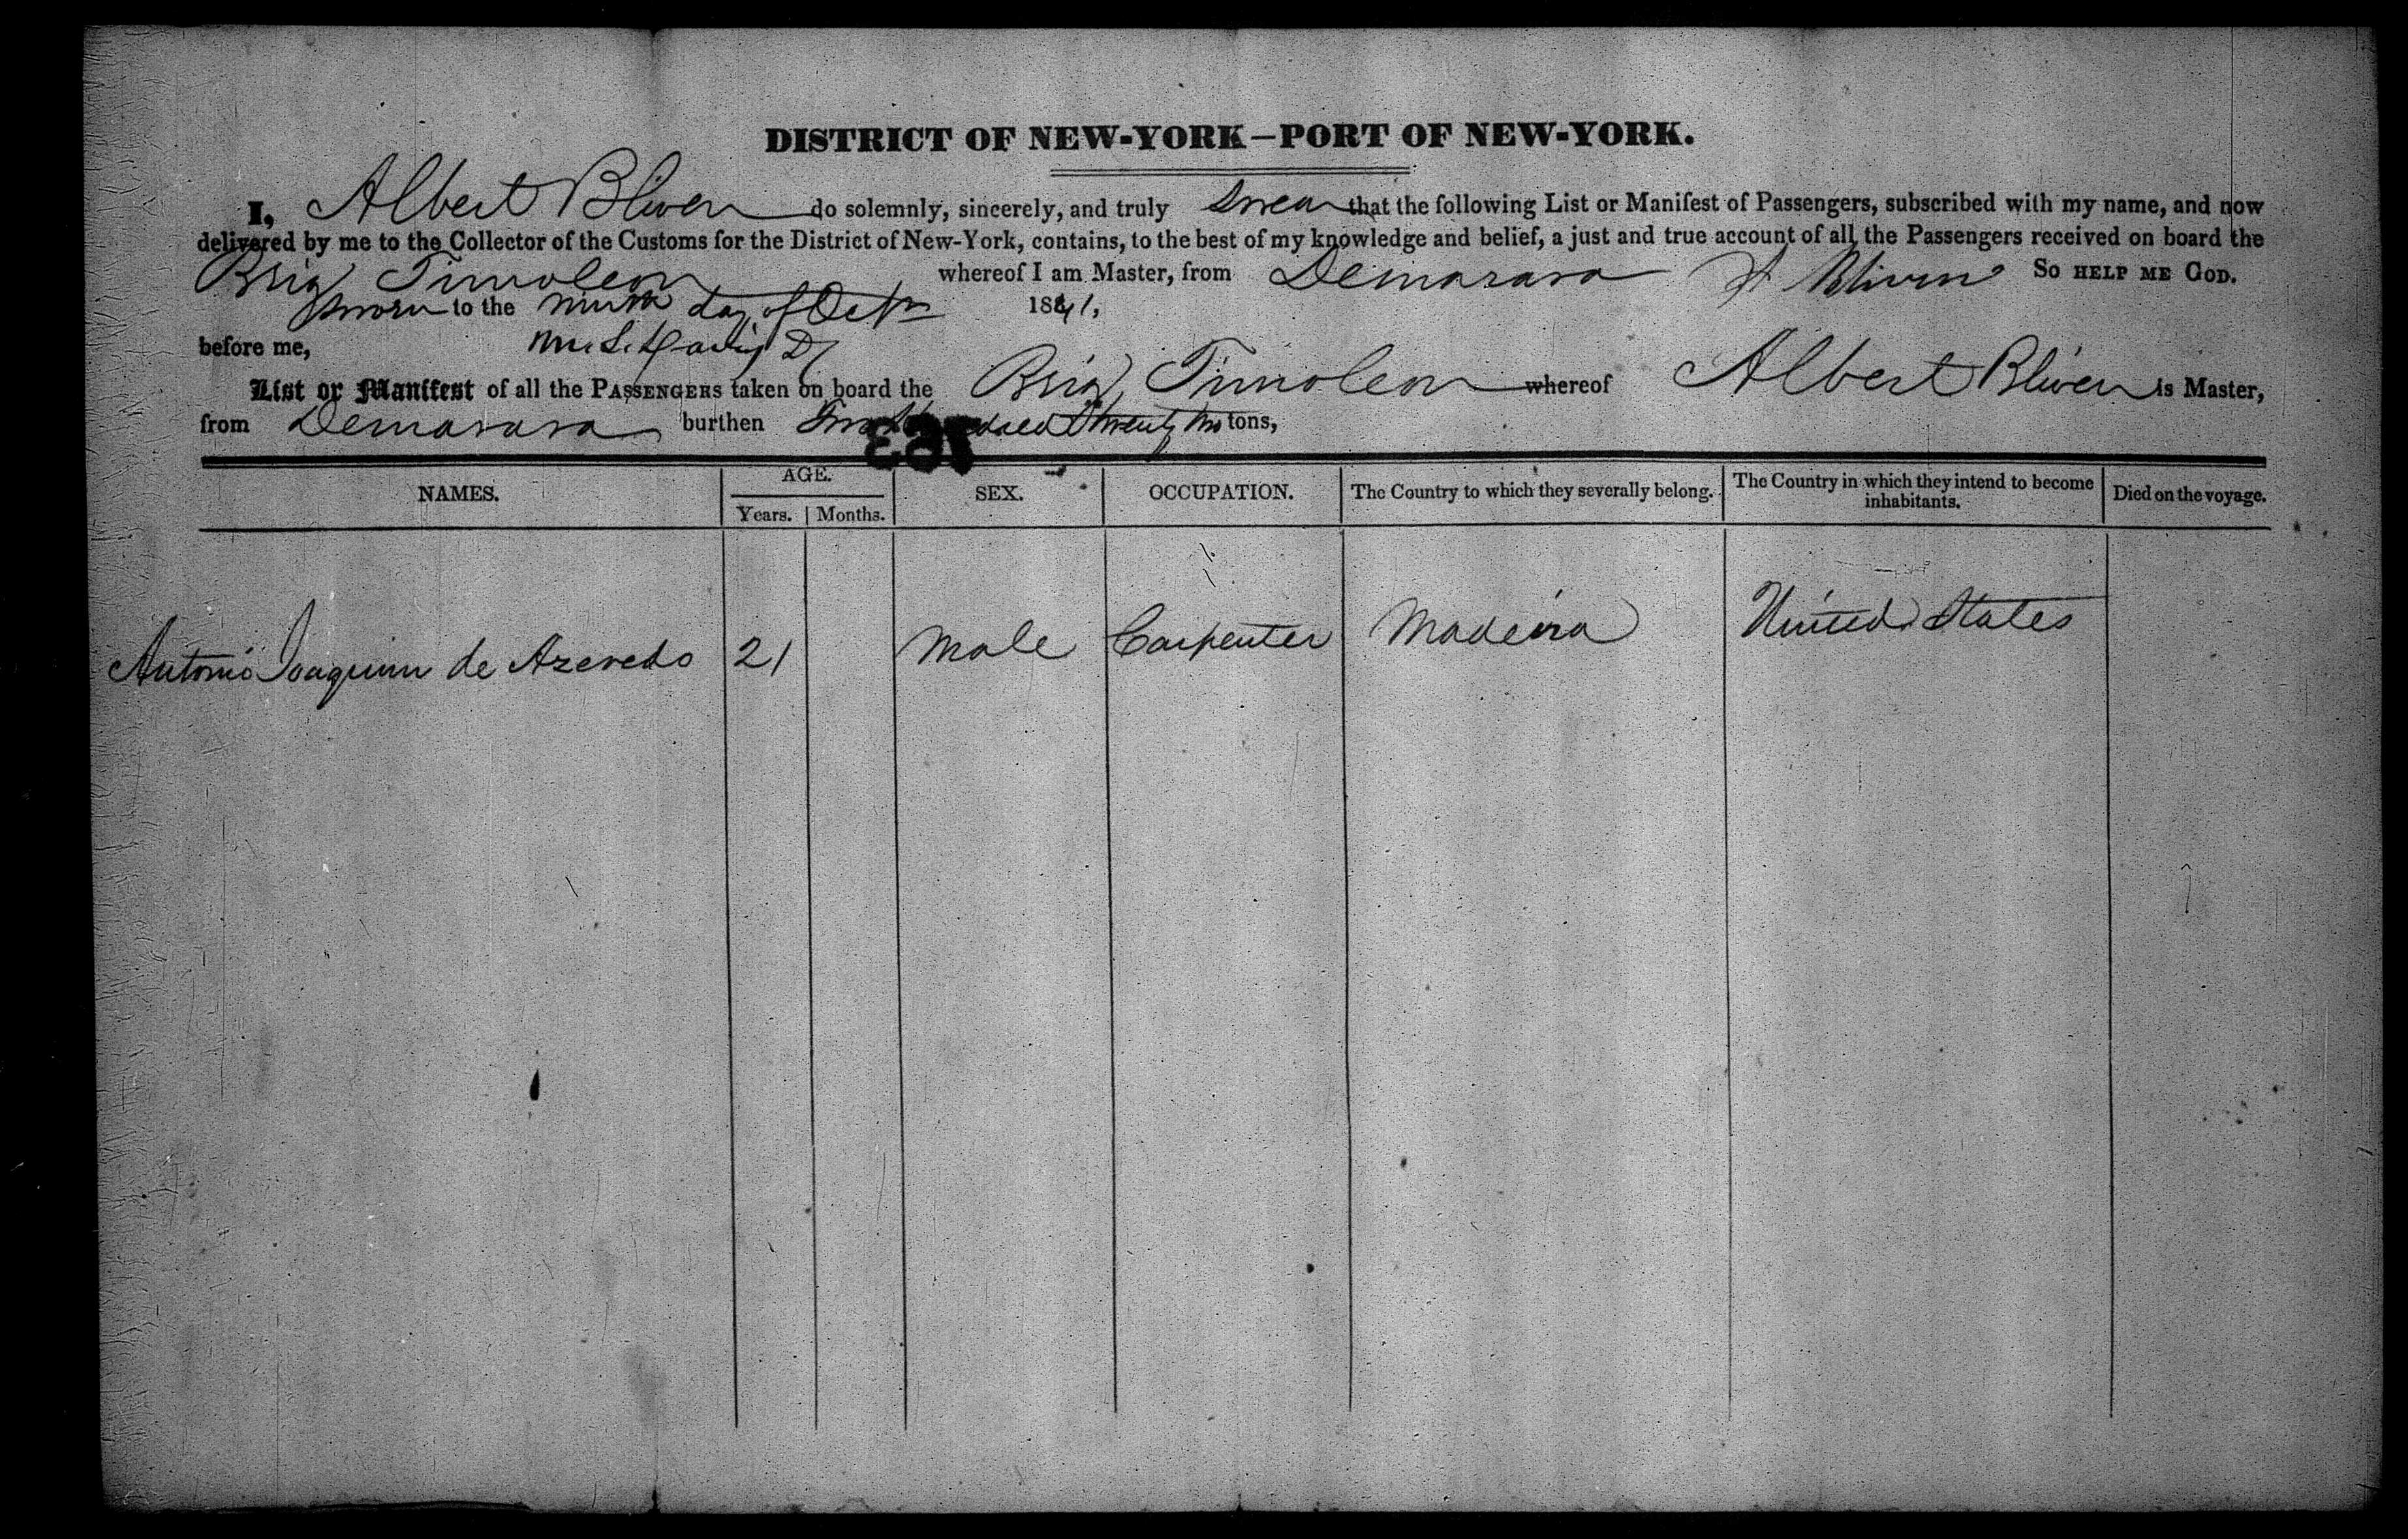 DISTRICT OF NEW-YORK—PORT OF NEW-YORK.
I, Albert Bliven do solemnly, sincerely, and truly swear that the following List or Manifest of Passengers, subscribed with my name, and now
delivered by me to the Collector of the Customs for the District of New-York, contains, to the best of my knowledge and belief, a just and true account of all the Passengers received on board the
Brig Timoleon whereof I am Master, from Demarara A Bliven SO HELP ME GOD.
Sworn to the ninth day of Octr 1841,
before me,
List or Manifest of all the PASSENGERS taken on board the Brig Timoleon whereof Albert Bliven is Master,
from Demarara burthen Two Hundred Twenty two tons,
NAMES. AGE. SEX. OCCUPATION. The Country to which they severally belong. The Country in which they intend to become inhabitants. Died on the voyage.
Years. Months.
Antonio Joaquim de Azevedo 21 Male Carpenter Madeira United States